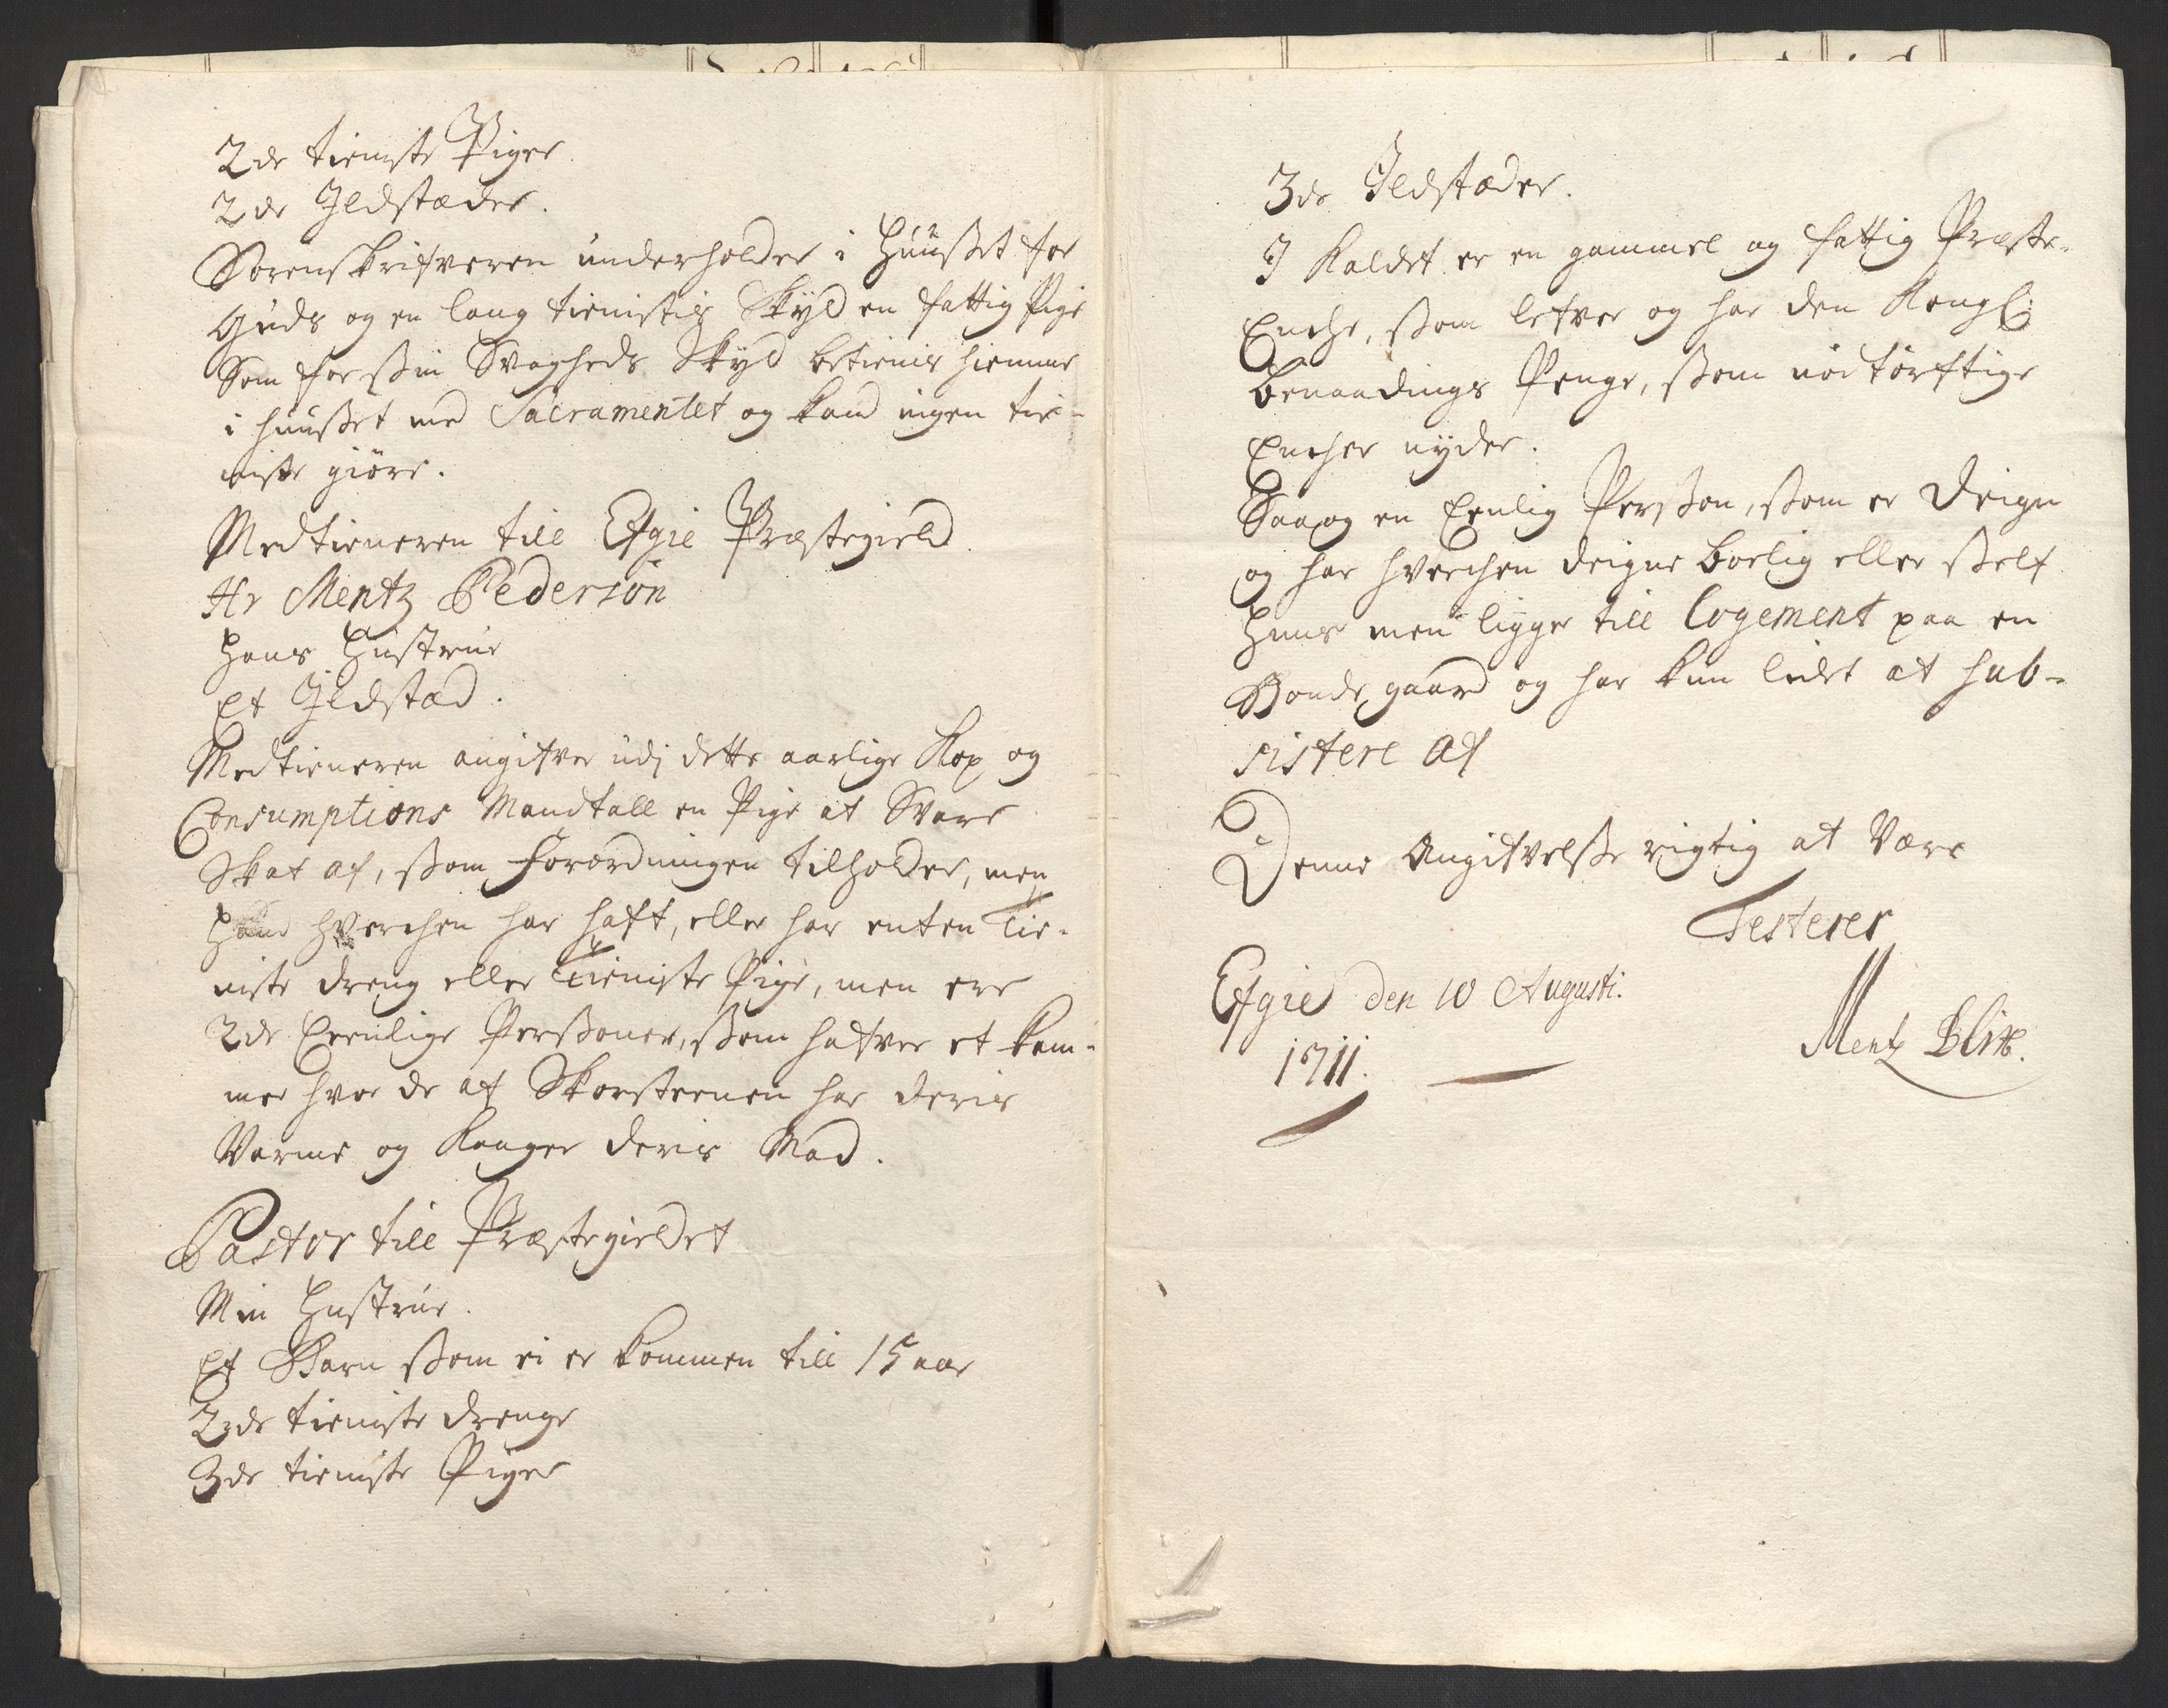 2de tieniste Piger
2de Ildstæder.
Sorenskrifveren underholder i Huuset for
Guds og en lang tienistis Skyld en fattig Pige
Som for ssin Svagheds Skyld betienis hiemme
i huusset med Sacramentet og kand ingen tie-
niste giöre.
Medtieneren till Efgie Præstegield
Hr Mentz Pedersön
Hans Hustrue
Et Ildstæd.
Medtieneren angifver udj dette aarlige Kop og
Consumptions Mandtall en Pige at Svare
Skat af, ssom Forordningen tilholder, men
Hand hverchen har haft, eller har enten Tie-
niste dreng eller Tieniste Pige, men ere
2de Eenlige Perssoner, ssom hafver et kam-
mer hvor de af Skorsteenen har deris
Varme og Kaager deris Mad.
Pastor till Præstegieldet
Min Hustrue.
Et Barn ssom ei er kommen till 15 aar
2de tieniste drenge
3de tieniste Piger
3de Ildstæder.
I Kaldet er en gammel og fattig Præste-
Enche, ssom lefver og har den Kongl:
Benaadings Penge, ssom nödtörftige
Encher nyder.
Saa og en Eenlig Persson, ssom er Deign
og har hverchen deigne boelig eller sself
Huus men ligger till Logement paa en
Bonde gaard og har kun lidet at sub-
sistere af
Denne Angifvelsse rigtig at Være
Testerer
Efgie den 10 Augusti.
1711.
Mentz Blix.